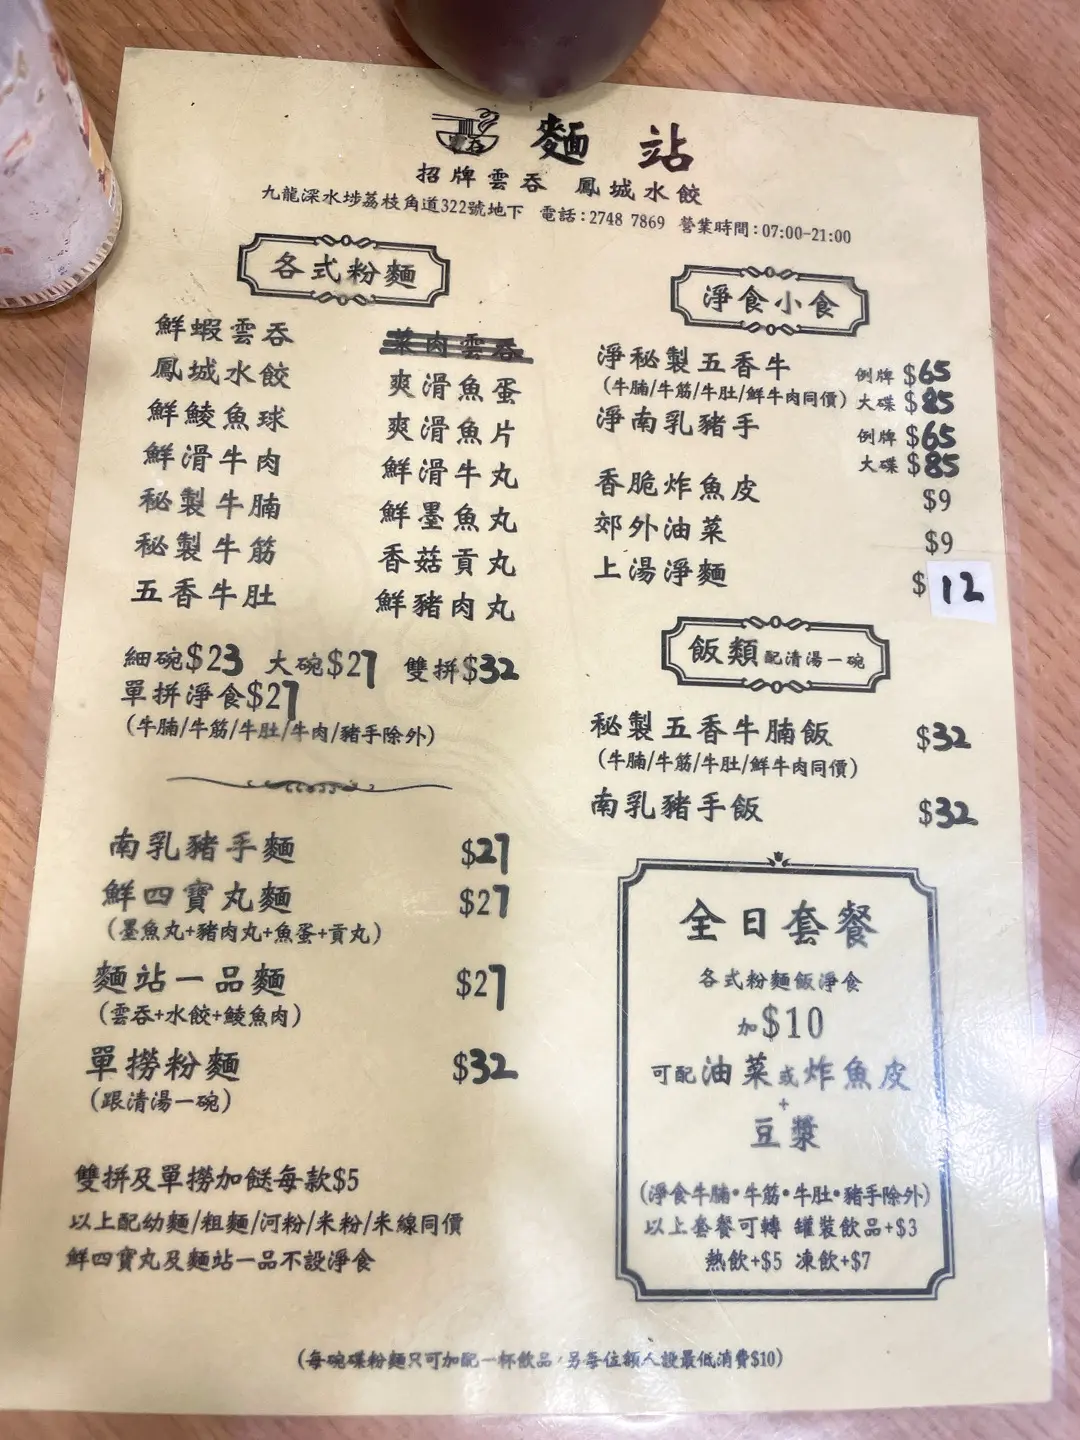 雲吞
麵 站
招牌雲吞 鳳城水餃
九龍深水埗荔枝角道322號地下 電話:2748 7869 營業時間:07:00-21:00
各式粉麵
鮮蝦雲吞
鳳城水餃
鮮鯪魚球
鮮滑牛肉
秘製牛腩
秘製牛筋
五香牛肚
菜肉雲吞
爽滑魚蛋
爽滑魚片
鮮滑牛丸
鮮墨魚丸
香菇貢丸
鮮豬肉丸
細碗$23 大碗$27 雙拼$32
單拼淨食$27
(牛腩/牛筋/牛肚/牛肉/豬手除外)
南乳豬手麵 $27
鮮四寶丸麵 $27
(墨魚丸+豬肉丸+魚蛋+貢丸)
麵站一品麵 $27
(雲吞+水餃+鯪魚肉)
單撈粉麵 $32
(跟清湯一碗)
雙拼及單撈加餸每款$5
以上配幼麵/粗麵/河粉/米粉/米線同價
鮮四寶丸及麵站一品不設淨食
淨食小食
淨秘製五香牛 例牌 $65
(牛腩/牛筋/牛肚/鮮牛肉同價) 大碟 $85
淨南乳豬手 例牌 $65
大碟 $85
香脆炸魚皮 $9
郊外油菜 $9
上湯淨麵 $12
飯類 配清湯一碗
秘製五香牛腩飯 $32
(牛腩/牛筋/牛肚/鮮牛肉同價)
南乳豬手飯 $32
全日套餐
各式粉麵飯淨食
加$10
可配油菜或炸魚皮
+
豆漿
(淨食牛腩•牛筋•牛肚•豬手除外)
以上套餐可轉 罐裝飲品+$3
熱飲+$5 凍飲+$7
(每碗碟粉麵只可加配一杯飲品,另每位額人設最低消費$10)